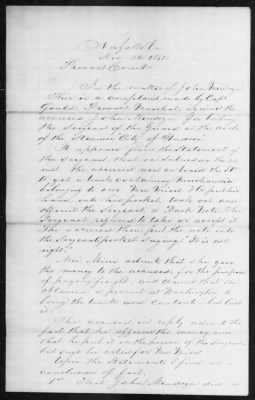 Norfolk Va
Nov 24, 1862
Provost Court
In the matter of John
This is a complaint made by Capt
Provost Marshal, against the
accused John for bribing
the Sergeant of the Guard at the dock
of the Steamer City of
It appears from the Statement of
the Sergeant, that on Saturday the 22
inst the accused went on board the St
to get a trunk containing Merchandise
belonging to one Mrs & put his
hand into his pocket, took out and
offered the Sergeant a Bank Note. The
Sergeant refused to take or receive it
The accused then put the note into
the Sergeants pocket saying "It is all
right."
Mrs admits that she gave
the money to the accused for the purpose
of paying freight and claims that she
obtained a permit at Washington to
bring the trunk and contents but lost
it.
The accused in reply admits the
fact that he offered the money and
that he put it on the person of the Sergeant
but says he acted for Mrs
Upon the Statements I find as a
conclusion of fact,
1st That John did